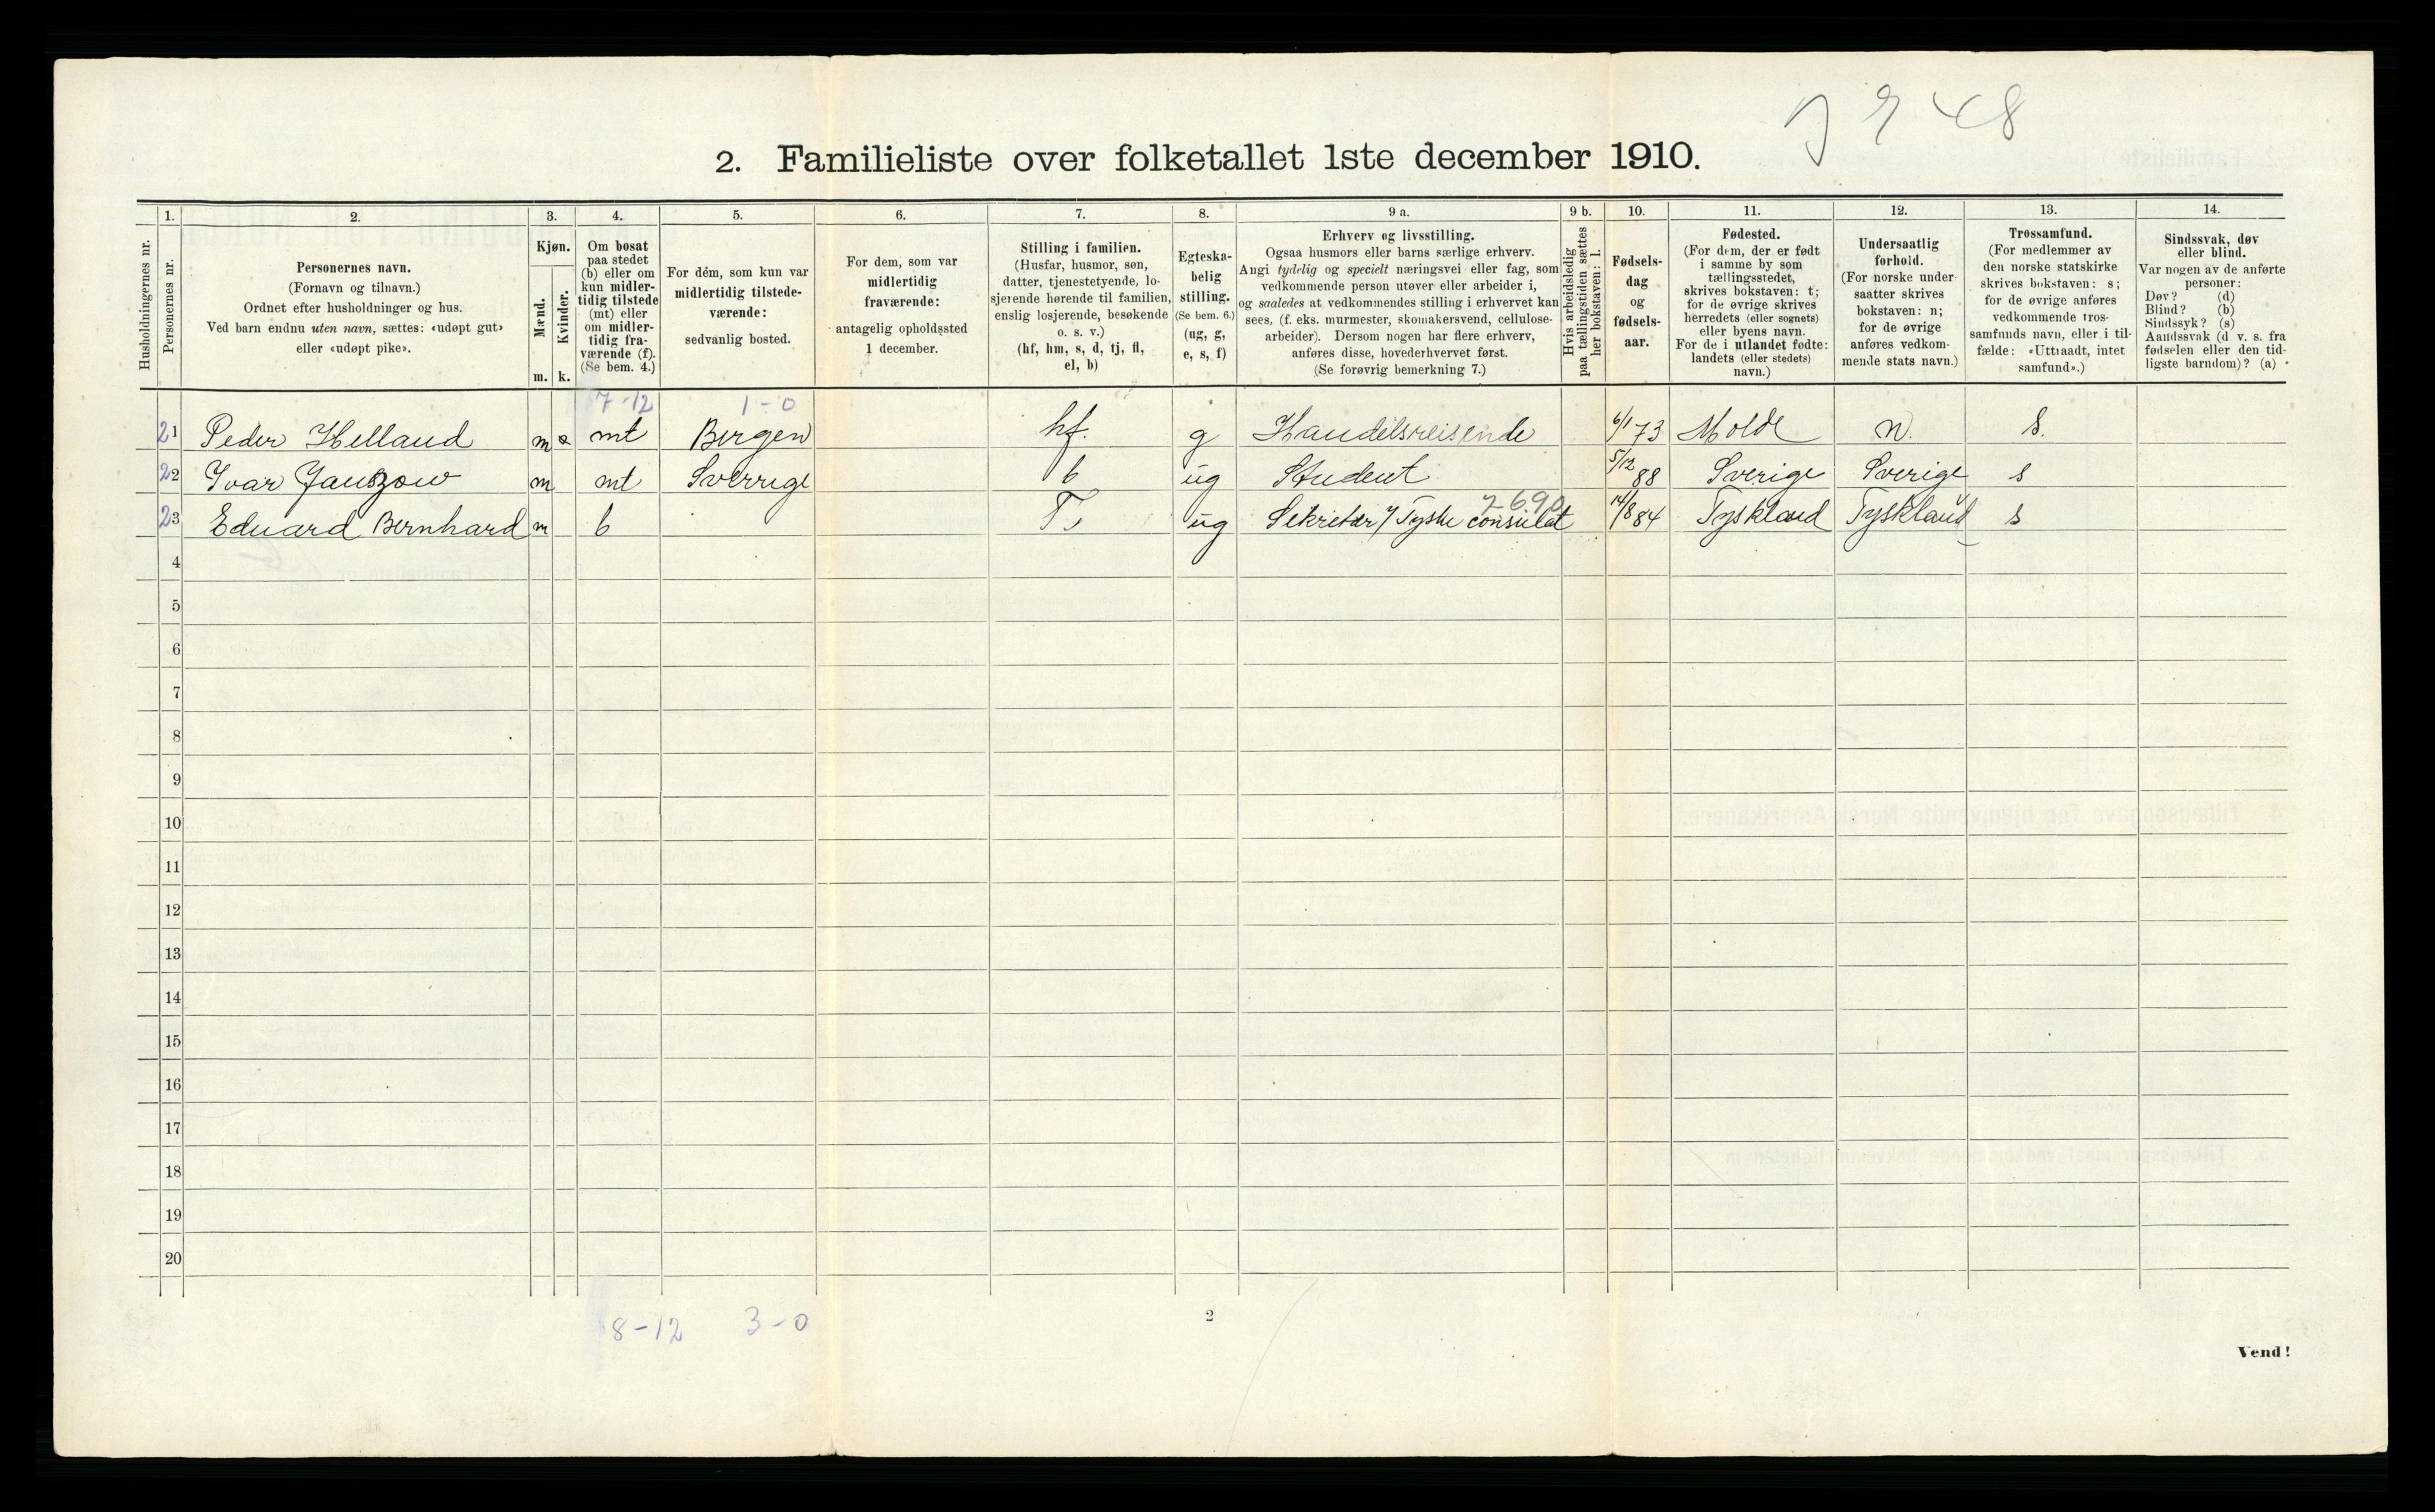 J 2 48
2. Familieliste over folketallet 1ste december 1910.
Husholdningernes nr.
1. Personernes nr.
2. Personernes navn. (Fornavn og tilnavn.) Ordnet efter husholdninger og hus. Ved barn endnu uten navn, sættes: «udøpt gut» eller «udøpt pike».
3. Kjøn. Mænd. m. Kvinder. k.
4. Om bosat paa stedet (b) eller om kun midler- tidig tilstede (mt) eller om midler- tidig fra- værende (f). (Se bem. 4.)
5. For dem, som kun var midlertidig tilstede- værende: sedvanlig bosted.
6. For dem, som var midlertidig fraværende: antagelig opholdssted 1 december.
7. Stilling i familien. (Husfar, husmor, søn, datter, tjenestetyende, lo- sjerende hørende til familien, enslig losjerende, besøkende o. s. v.) (hf, hm, s, d, tj, fl, el, b)
8. Egteska- belig stilling. (Se bem. 6.) (ug, g, e, s, f)
9 a. Erhverv og livsstilling. Ogsaa husmors eller barns særlige erhverv. Angi tydelig og specielt næringsvei eller fag, som vedkommende person utøver eller arbeider i, og saaledes at vedkommendes stilling i erhvervet kan sees, (f. eks. murmester, skomakersvend, cellulose- arbeider). Dersom nogen har flere erhverv, anføres disse, hovederhvervet først. (Se forøvrig bemerkning 7.)
9 b. Hvis arbeidsledig paa tællingstiden sættes her bokstaven: l.
10. Fødsels- dag og fødsels- aar.
11. Fødested. (For dem, der er født i samme by som tællingsstedet, skrives bokstaven: t; for de øvrige skrives herredets (eller sognets) eller byens navn. For de i utlandet fødte: landets (eller stedets) navn.)
12. Undersaatlig forhold. (For norske under- saatter skrives bokstaven: n; for de øvrige anføres vedkom- mende stats navn.)
13. Trossamfund. (For medlemmer av den norske statskirke skrives bokstaven: s; for de øvrige anføres vedkommende tros- samfunds navn, eller i til- fælde: «Uttraadt, intet samfund».)
14. Sindssvak, døv eller blind. Var nogen av de anførte personer: Døv? (d) Blind? (b) Sindssyk? (s) Aandssvak (d. v. s. fra fødselen eller den tid- ligste barndom)? (a)
7-12 1-0
21 Peder Helland m mt Bergen hf. g Handelsreisende 6/1 73 Molde n. s.
22 Ivar Janszow m mt Sverrige b ug Student 5/12 88 Sverige Sverige s
2690
23 Eduard Bernhard m b ug Sekretær Tyske consulat 14/8 84 Tyskland Tyskland s
4
5
6
7
8
9
10
11
12
13
14
15
16
17
18
19
20
8-12 3-0
2
Vend!